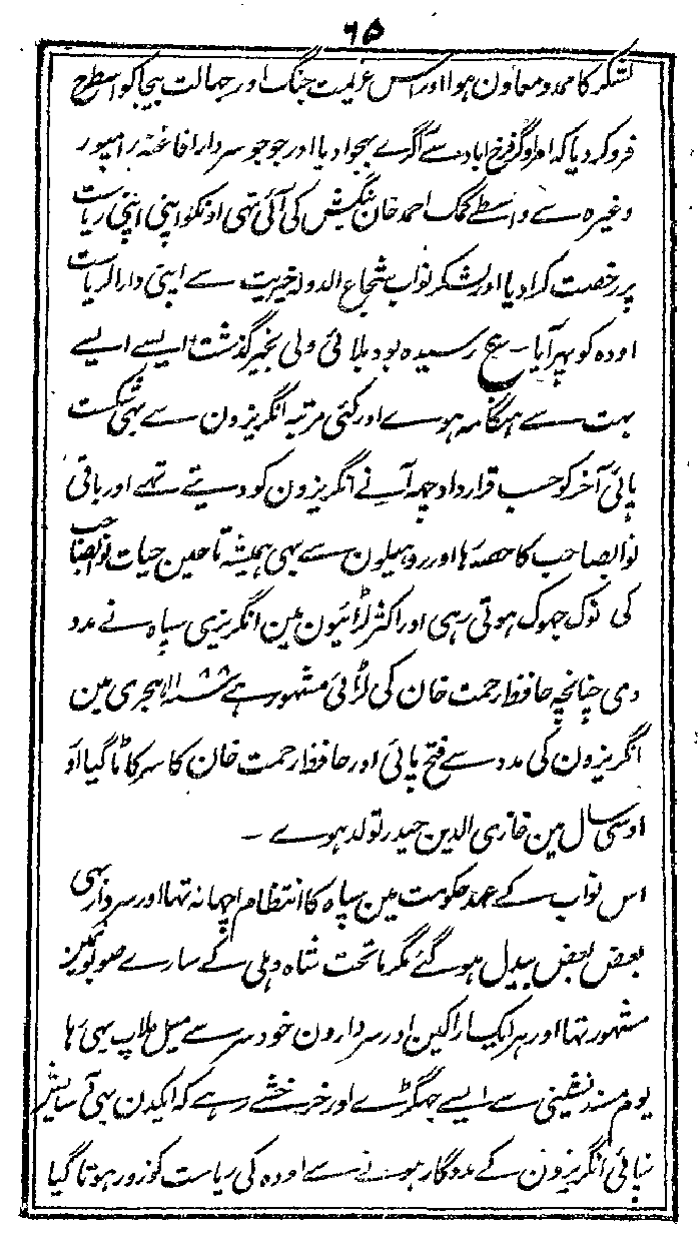 ۶۵
لشکر کا ممد و معاون ہوا اور اس عزیمت جنگ اور جہالت بیجا کو اسطرح
فرو کر دیا کہ امراوگر فرخ اباد سے آگرے بھجوا دیا اور جو جو سردار افاغنہ رامپور
وغیرہ سے واسطے کمک احمد خان بنگیش کی آئی تہی اونکو اپنی اپنی ریاست
پر رخصت کرا دیا اور لشکر نواب شجاع الدولہ خیریت سے اپنی دارالریاست
اودہ کو پہر آیا ۔ ع رسیدہ بود بلائی ولی بخیر گذشت ایسے ایسے
بہت سے ہنگامہ ہوے اور کئی مرتبہ انگریزون سے بہی شکست
پائی آخر کو حسب قرارداد چہہ آنے انگریزون کو دیتے تہے اور باقی
نوابصاحب کا حصہ رہا اور روہیلون سے بہی ہمیشہ تا حین حیات نوابصاحب
کی نوک جہوک ہوتی رہی اور اکثر لڑائیون مین انگریزی سپاہ نے مدد
دی چنانچہ حافظ رحمت خان کی لڑائی مشہور ہے ۱۱۸۸ ہجری مین
انگریزون کی مدد سے فتح پائی اور حافظ رحمت خان کا سر کاٹا گیا او
اوسی سال مین غازی الدین حیدر تولد ہوے ۔
اس نواب کے عہد حکومت مین سپاہ کا انتظام اچہا نہ تہا اور سردار بہی
بعض بعض بیدل ہو گئے مگر ماتحت شاہ دہلی کے سارے صوبونمین
مشہور تہا اور ہر ایک اراکین اور سردارون خود سر سے میل ملاپ بہی رہا
یوم مسند نشینی سے ایسے جہگڑے اور خرخشے رہے کہ ایکدن بہی آسایش
نپائی انگریزون کے مددگار ہونے سے اودہ کی ریاست کو زور ہوتا گیا